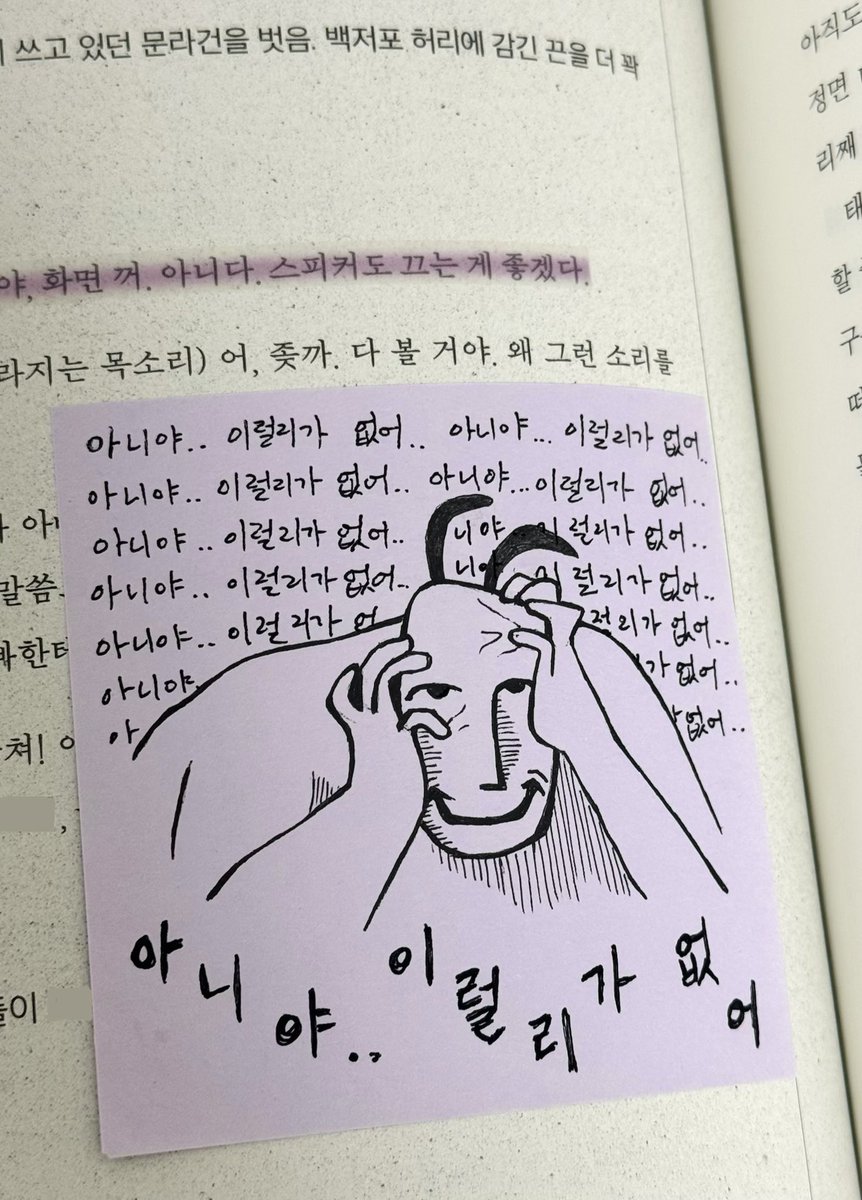 쓰고 있던 문라건을 벗음. 백저포 허리에 감긴 끈을 더 꽉
야, 화면 꺼. 아니다. 스피커도 끄는 게 좋겠다.
라지는 목소리) 어, 좆까. 다 볼 거야. 왜 그런 소리를
아니야.. 이럴리가 없어.. 아니야... 이럴리가 없어..
아니야.. 이럴리가 없어.. 아니야... 이럴리가 없어..
아니야.. 이럴리가 없어.. 니야 이럴리가 없어..
아니야.. 이럴리가 없어.. 니야 이럴리가 없어..
아니야.. 이럴리가 없어 럴리가 없어..
아니야. 가 없어..
아 없어..
말씀
한테
쳐!
들이
아니야.. 이럴리가 없어
아직도
정면
리째
태
할
구